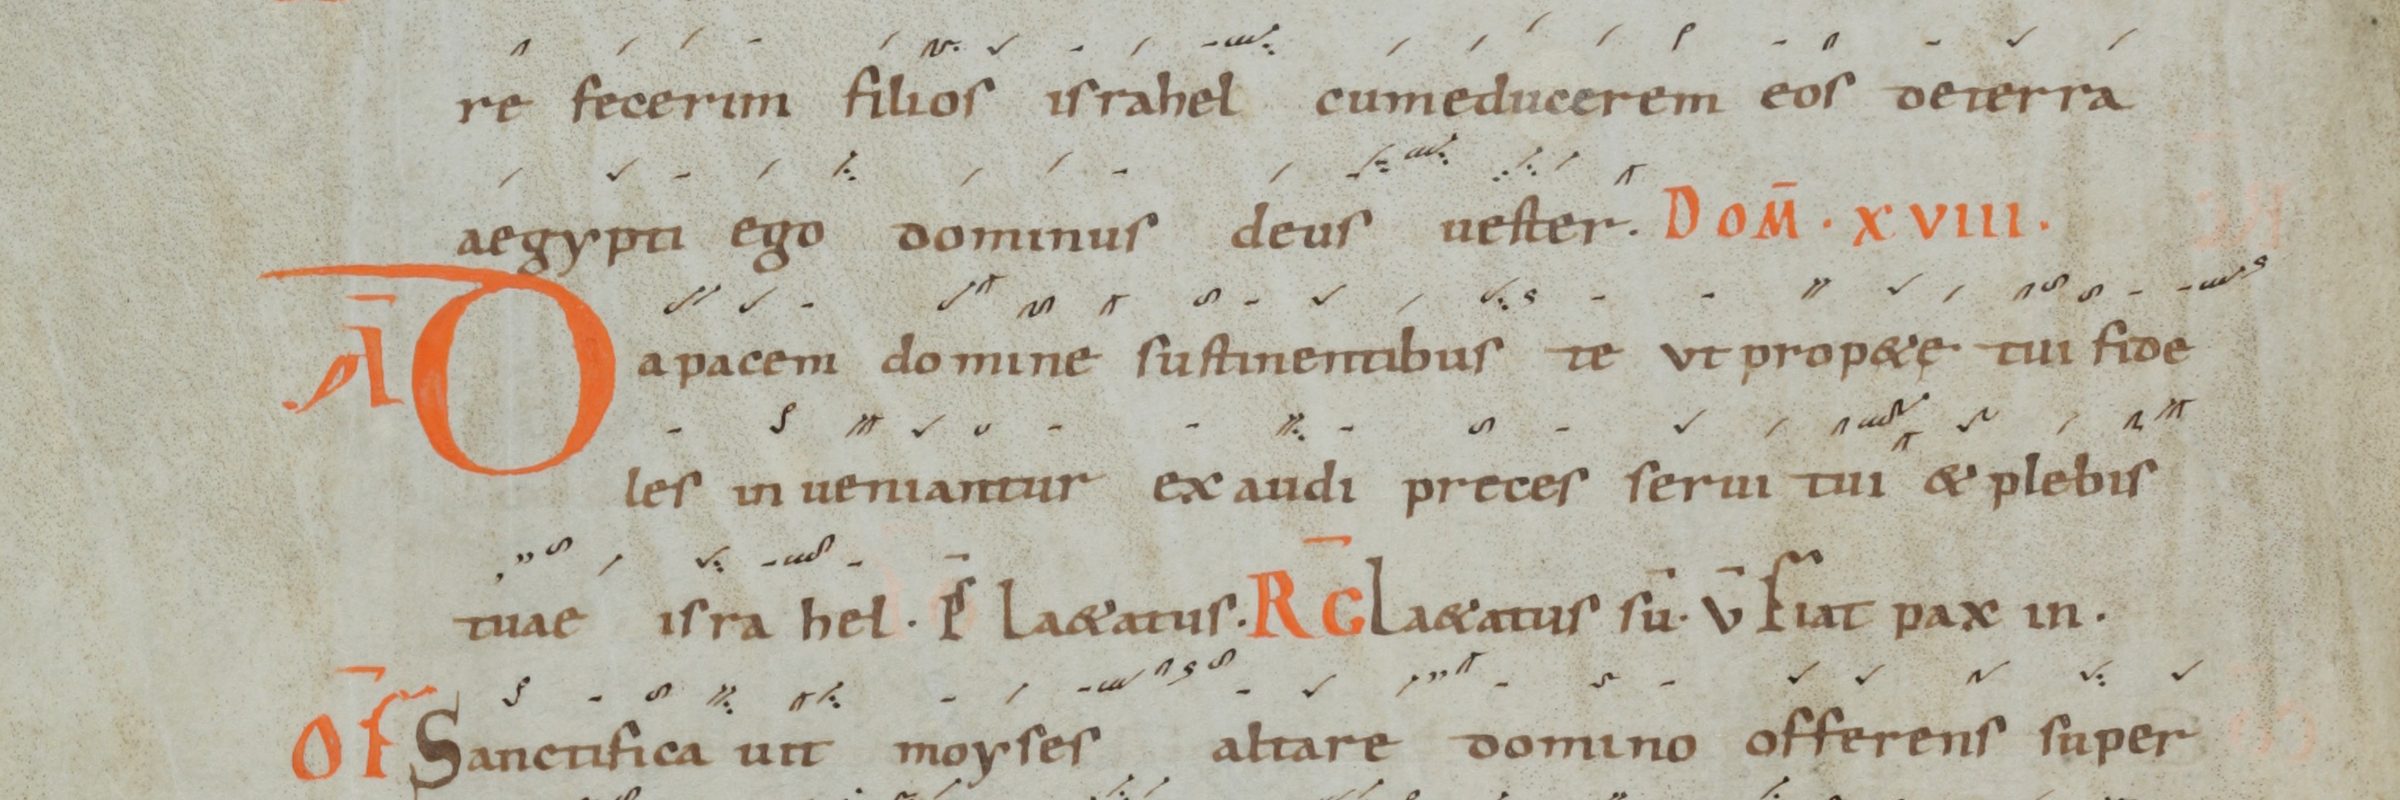 re fecerim filios israhel cumeducerem eos deterra
aegypti ego dominus deus uester. Dom̄. XVIII.
Ā Dapacem domine sustinentibus te vt prophetę tui fide
les inueniantur exaudi preces serui tui & plebis
tuae israhel. P̄s La&atus. R̄G La&atus sū. V̄ Fiat pax in.
OF̄ Sanctificauit moyses altare domino offerens super